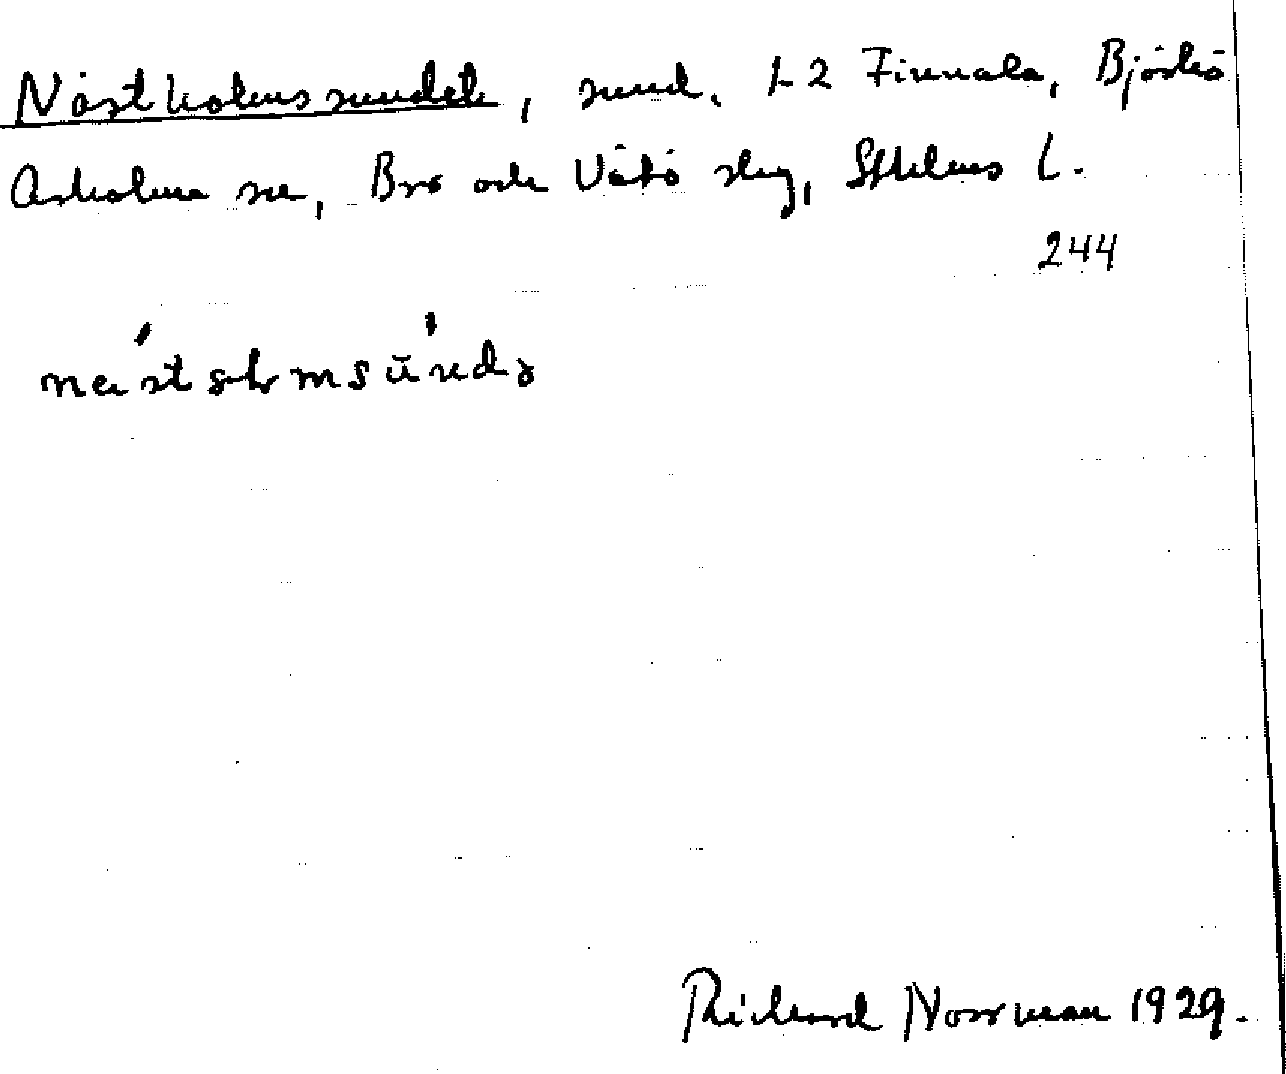 Nästholmssundet, sund, 1-2 Finnala, Björkö
Arholma sn, Bro och Vätö slg, Sthlms l.
244
Richard Norrman 1929.